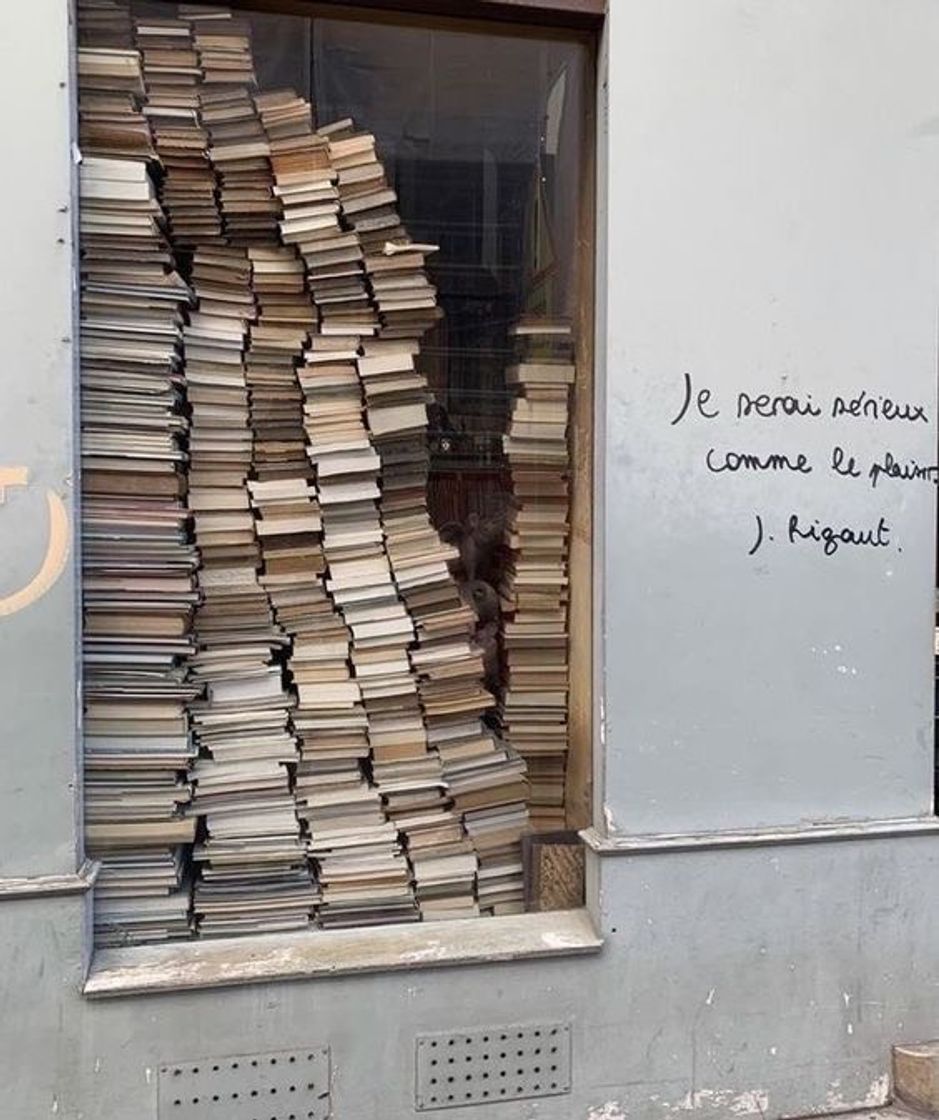 Je serai sérieux
comme le plaisir
J. Rigaut.